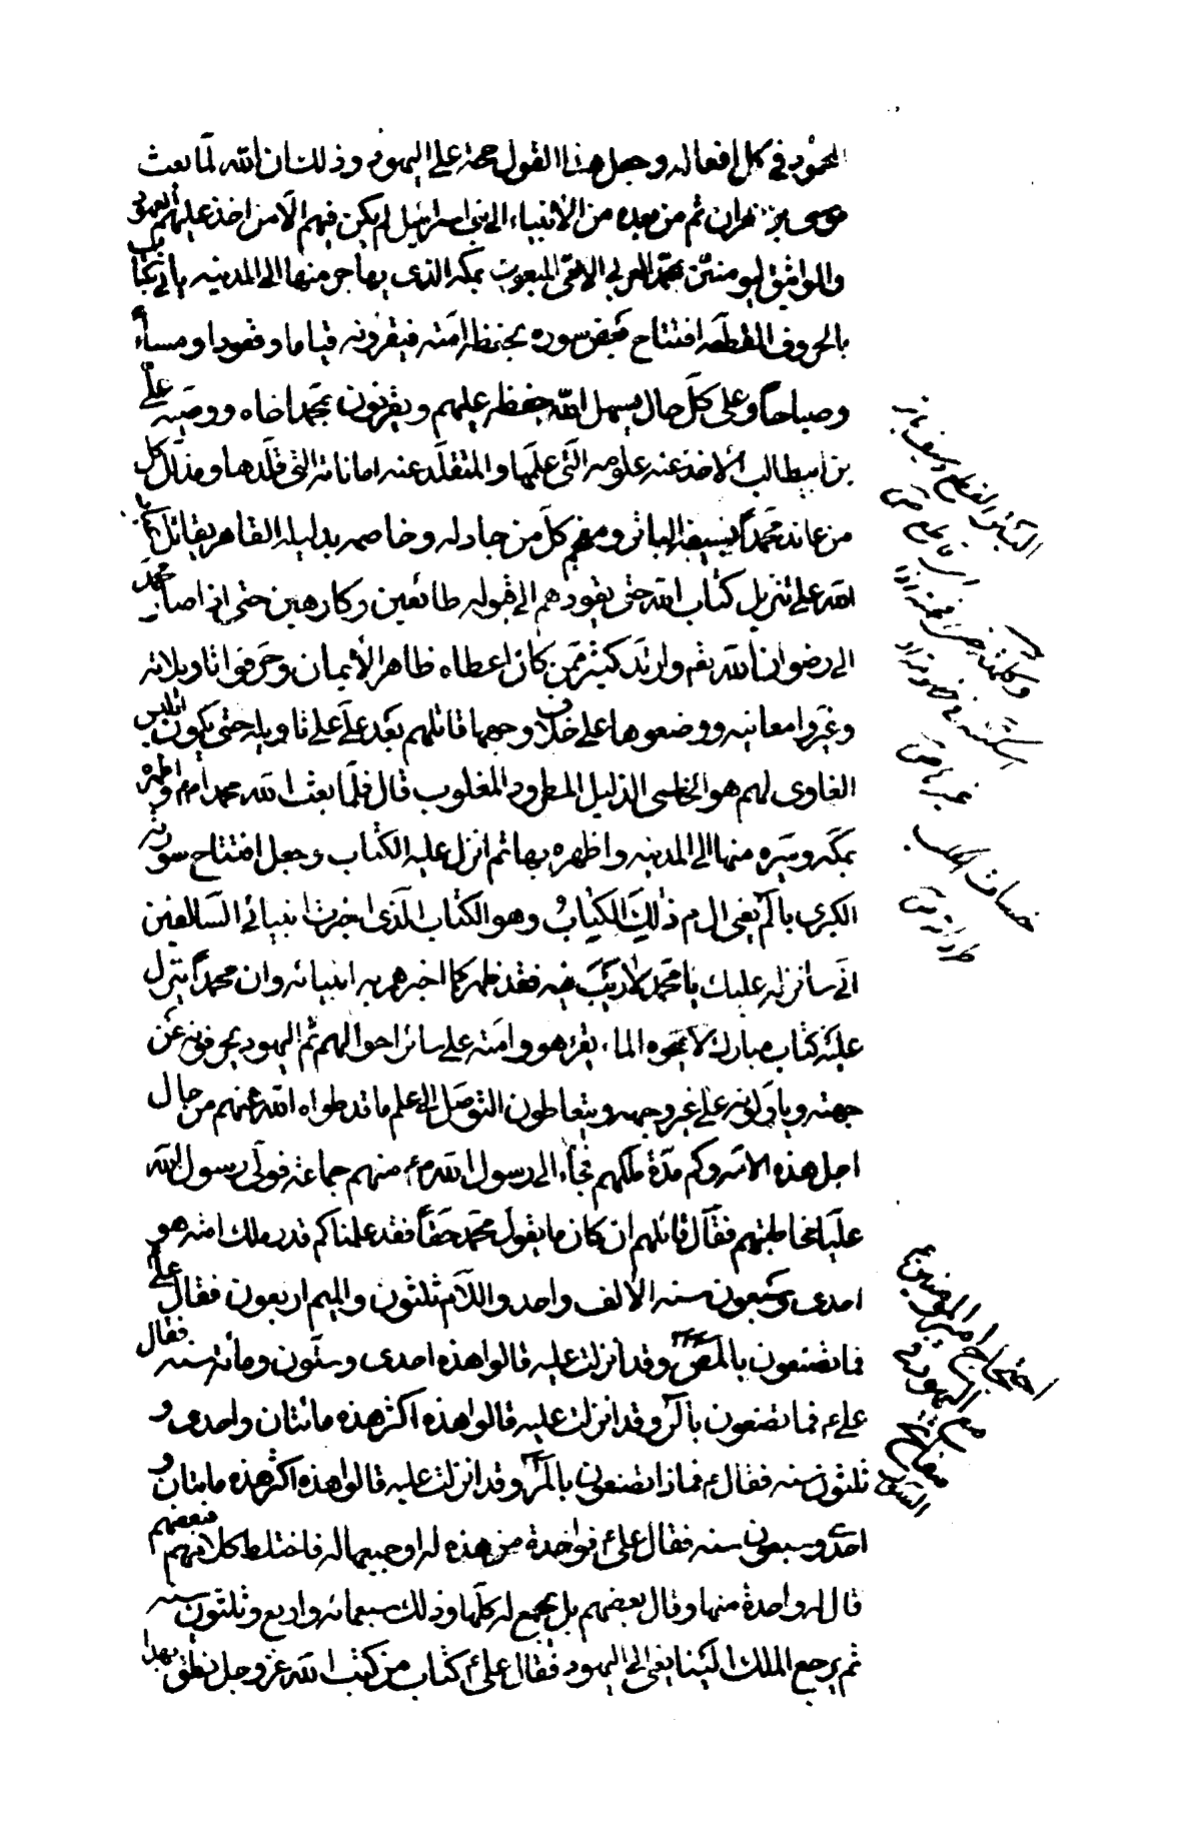 المحمود في كل افعاله وجعل هذا القول حجة على اليهود وذلك ان الله لما بعث
موسى بن عمران ثم من بعده من الأنبياء الى بني اسرائيل لم يكن فيهم الا من اخذ عليهم العهود
والمواثيق ليومنن بمحمد العربي الامي المبعوث بمكه الذى يهاجر منها الى المدينه ياتي بكتاب
بالحروف المقطعه افتتاح بعض سوره يحفظه امته فيقرؤنه قياما وقعودا ومساء
وصباحا وعلى كل حال يسهل الله حفظه عليهم ويقرنون بمحمد اخاه ووصيه على
بن ابيطالب الاخذ عنه علومه التي علمها والمتقلد عنه اماناته التي قلدها ومذلل كل
من عاند محمدا بسيفه الباتر ومفحم كل من جادله وخاصمه بدليله القاهر يقاتل عباد
الله على تنزيل كتاب الله حتى يقودهم الى قبوله طائعين وكارهين حتى اذا صار محمد
الى رضوان الله تعم وارتد كثير ممن كان اعطاه ظاهر الأيمان وحرفوا تاويلاته
وغيروا معانيه ووضعوها على خلاف وجهها قاتلهم بعد على على تاويله حتى يكون ابليس
الغاوى لهم هو الخاسى الذليل المطرود المغلوب قال فلما بعث الله محمدا م واظهره
بمكه وسيره منها الى المدينه واظهره بها ثم انزل عليه الكتاب وجعل افتتاح سورته
الكبرى بالم يعنى ال م ذلك الكتاب وهو الكتاب الذى اخبرت انبيائي السالفين
اني سانزله عليك يا محمد لا ريب فيه فقد ظهر كما اخبرهم به انبيائه وان محمدا ينزل
عليه كتاب مبارك لا يمحوه الماء يقرؤه هو وامته على سائر احوالهم ثم اليهود يحرفونه عن
جهته وياولونه على غير وجهه ويتعاطون التوصل الى علم ما قد طواه الله عنهم من حال
اجل هذه الامه وكم مدة ملكهم فجاء الى رسول الله م منهم جماعة فولى رسول الله
عليا مخاطبتهم فقال قائلهم ان كان ما يقول محمد حقا فقد علمناكم قدر ملك امته هو
احدى وسبعون سنه الالف واحد واللام ثلثون والميم اربعون فقال على
فما تصنعون بالمص وقد انزلت عليه قالوا هذه احدى وستون ومائة سنه فقال
على ع فما تصنعون بالر وقد انزلت عليه قالوا هذه اكثر هذه مائتان واحدى و
ثلثون سنه فقال ع فماذا تصنعون بالمر وقد انزلت عليه قالوا هذه اكثر هذه مايتان و
احدى وسبعون سنه فقال على ع فواحدة من هذه له او جميعها له فاختلط كلامهم فبعضهم
قال له واحدة منها وقال بعضهم بل يجمع له كلها وذلك سبعمائه واربع وثلثون سنه
ثم يرجع الملك الينا يعنى الى اليهود فقال على ع اكتاب من كتب الله عز وجل نطق بهذا
احتجاج امير المؤمنين ع
مع اليهود في
مفاتح
السور